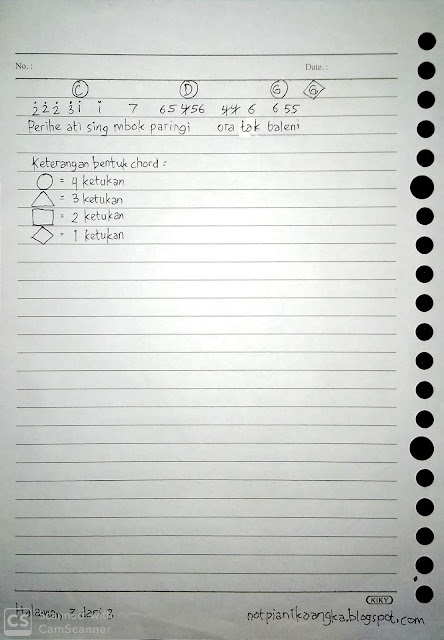 No. :
Date. :
C D G G
2̇ 2̇ 2̇ 3̇ 1̇ 1̇ 7 65 4̸56 4̸4̸ 6 6 55
Perihe ati sing mbok paringi ora tak baleni
Keterangan bentuk chord =
= 4 ketukan
= 3 ketukan
= 2 ketukan
= 1 ketukan
KIKY
Halaman 3 dari 3
CS Scanned with
CamScanner
notpianikaangka.blogspot.com